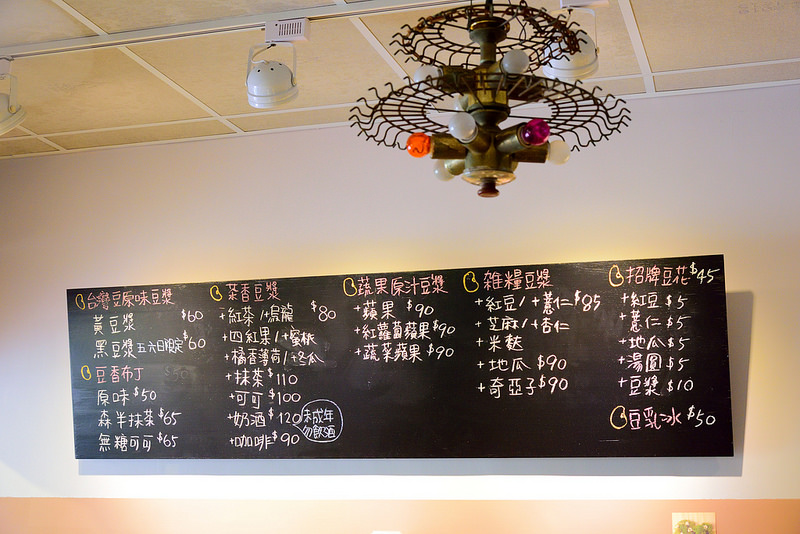 台灣豆原味豆漿
黃豆漿 $60
黑豆漿五六日限定 $60
豆香布丁
原味 $50
森半抹茶 $65
無糖可可 $65
茶香豆漿
+紅茶/+烏龍 $80
+四紅果/+蜜桃
+橘香薄荷/+冬瓜
+抹茶 $110
+可可 $100
+奶酒 $120
未成年
勿飲酒
+咖啡 $90
蔬果原汁豆漿
+蘋果 $90
+紅蘿蔔蘋果 $90
+蔬菜蘋果 $90
雜糧豆漿
+紅豆/+薏仁 $85
+芝麻/+杏仁
+米麩
+地瓜 $90
+奇亞子 $90
招牌豆花 $45
+紅豆 $5
+薏仁 $5
+地瓜 $5
+湯圓 $5
+豆漿 $10
豆乳冰 $50